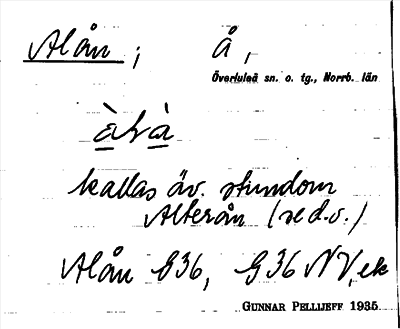 Alån ; å,
Överluleå sn. o. tg., Norrb. län
àlvà
kallas äv. stundom
Alterån (se d.o.)
Alån G36, G36 NV, ek
GUNNAR PELLIJEFF 1935